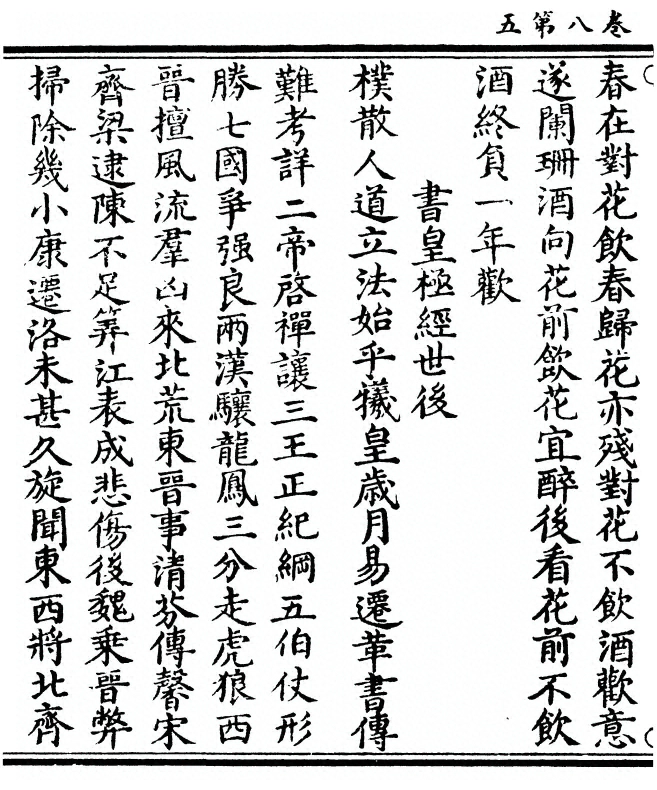 卷八第五
春在對花飲春歸花亦殘對花不飲酒歡意
遂闌珊酒向花前飲花宜醉後看花前不飲
酒終負一年歡
書皇極經世後
樸散人道立法始乎犧皇歲月易遷革書傳
難考詳二帝啓禪讓三王正紀綱五伯仗形
勝七國爭强良兩漢驤龍鳳三分走虎狼西
晉擅風流羣凶來北荒東晉事清芬傳馨宋
齊梁逮陳不足筭江表成悲傷後魏乘晉弊
掃除幾小康遷洛未甚久旋聞東西將北齊